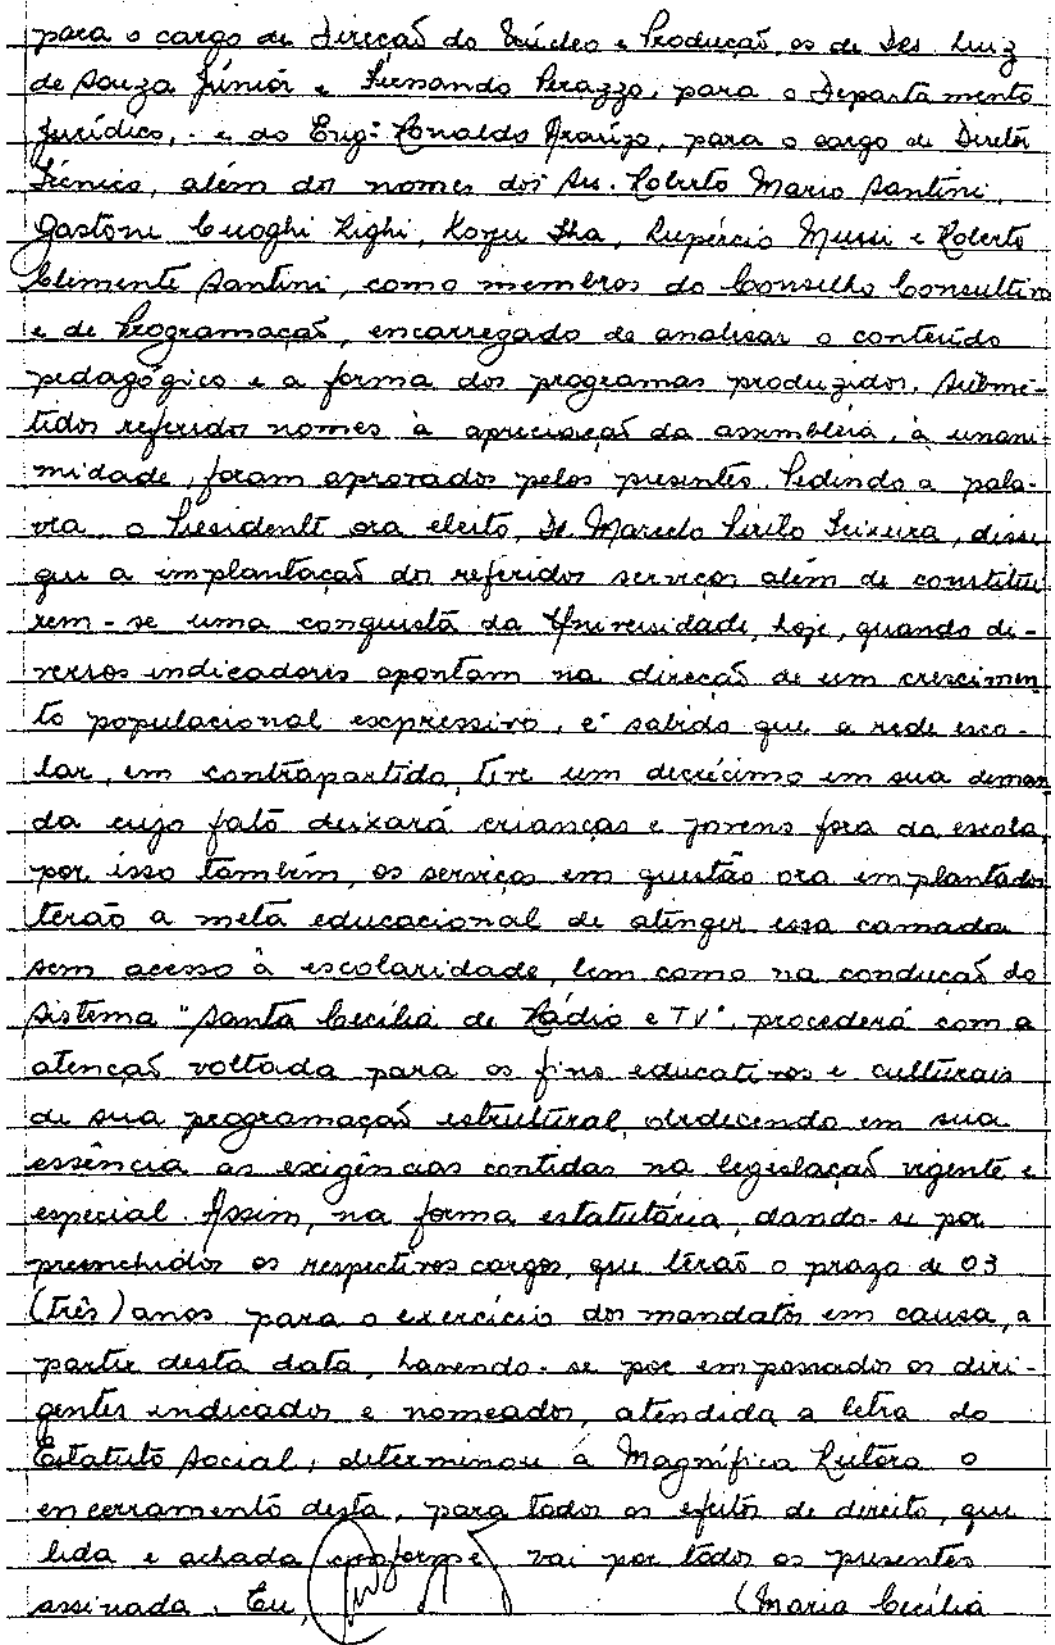 para o cargo de Direção do Núcleo e Produção, os de Drs. Luiz
de Souza Júnior e Fernando Perazzo, para o Departamento
Jurídico, - e do Engº Ronaldo Araújo, para o cargo de Diretor
Técnico, além dos nomes dos Srs. Roberto Mario Santini,
Gastone Cuoghi Righi, Koyu Iha, Rupércio Mussi e Roberto
Clemente Santini, como membros do Conselho Consultivo
e de Programação, encarregado de analisar o conteúdo
pedagógico e a forma dos programas produzidos. Subme-
tidos referidos nomes à apreciação da assembléia, à unani-
midade, foram aprovados pelos presentes. Pedindo a pala-
vra, o Presidente ora eleito, Dr. Marcelo Pirilo Teixeira, disse
que a implantação dos referidos serviços além de constituí
rem-se uma conquista da Universidade, hoje, quando di-
versos indicadores apontam na direção de um crescimen
to populacional expressivo, é sabido que a rede esco-
lar, em contrapartida, teve um decréscimo em sua deman
da cujo fato deixará crianças e jovens fora da escola,
por isso também, os serviços em questão ora implantados
terão a meta educacional de atingir essa camada
sem acesso à escolaridade, bem como na condução do
Sistema "Santa Cecília de Rádio e TV", procederá com a
atenção voltada para os fins educativos e culturais
de sua programação estrutural, obedecendo em sua
essência as exigências contidas na legislação vigente e
especial. Assim, na forma estatutária, dando-se por
preenchidos os respectivos cargos, que terão o prazo de 03
(três) anos para o exercício dos mandatos em causa, a
partir desta data, havendo-se por empossados os diri-
gentes indicados e nomeados, atendida a letra do
Estatuto Social, determinou a Magnífica Reitora o
encerramento desta, para todos os efeitos de direito, que
lida e achada conforme vai por todos os presentes
assinada. Eu, (Maria Cecília